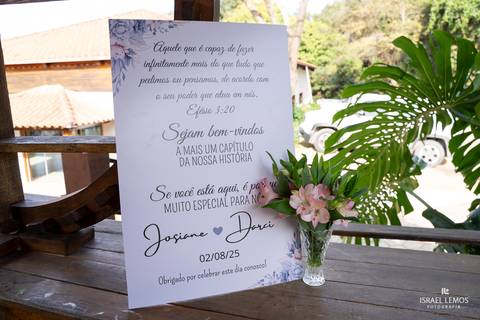 Àquele que é capaz de fazer
infinitamente mais do que tudo que
pedimos ou pensamos, de acordo com
o seu poder que atua em nós.
Efésio 3:20
Sejam bem-vindos
A MAIS UM CAPÍTULO
DA NOSSA HISTÓRIA
Se você está aqui, é
MUITO ESPECIAL PARA
Josiane Darci
02/08/25
Obrigado por celebrar este dia conosco!
ISRAEL LEMOS
FOTOGRAFIA